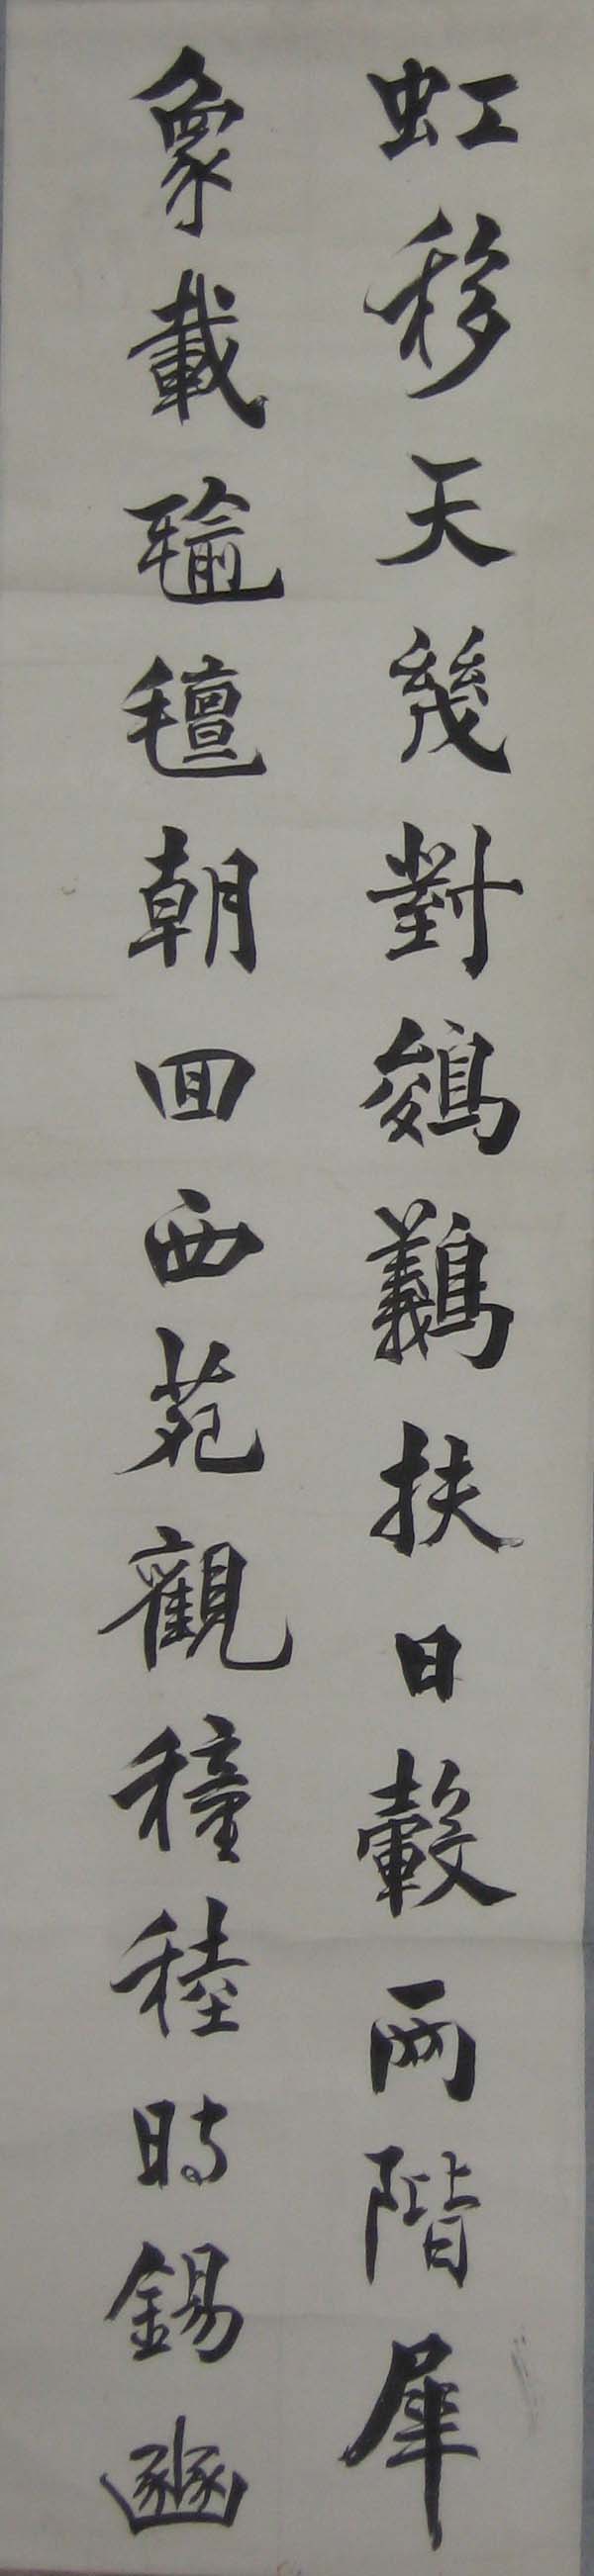 虹移天幾對鵕鸃扶日轂兩階犀
象載毹氈朝回西苑觀穜稑時錫豳